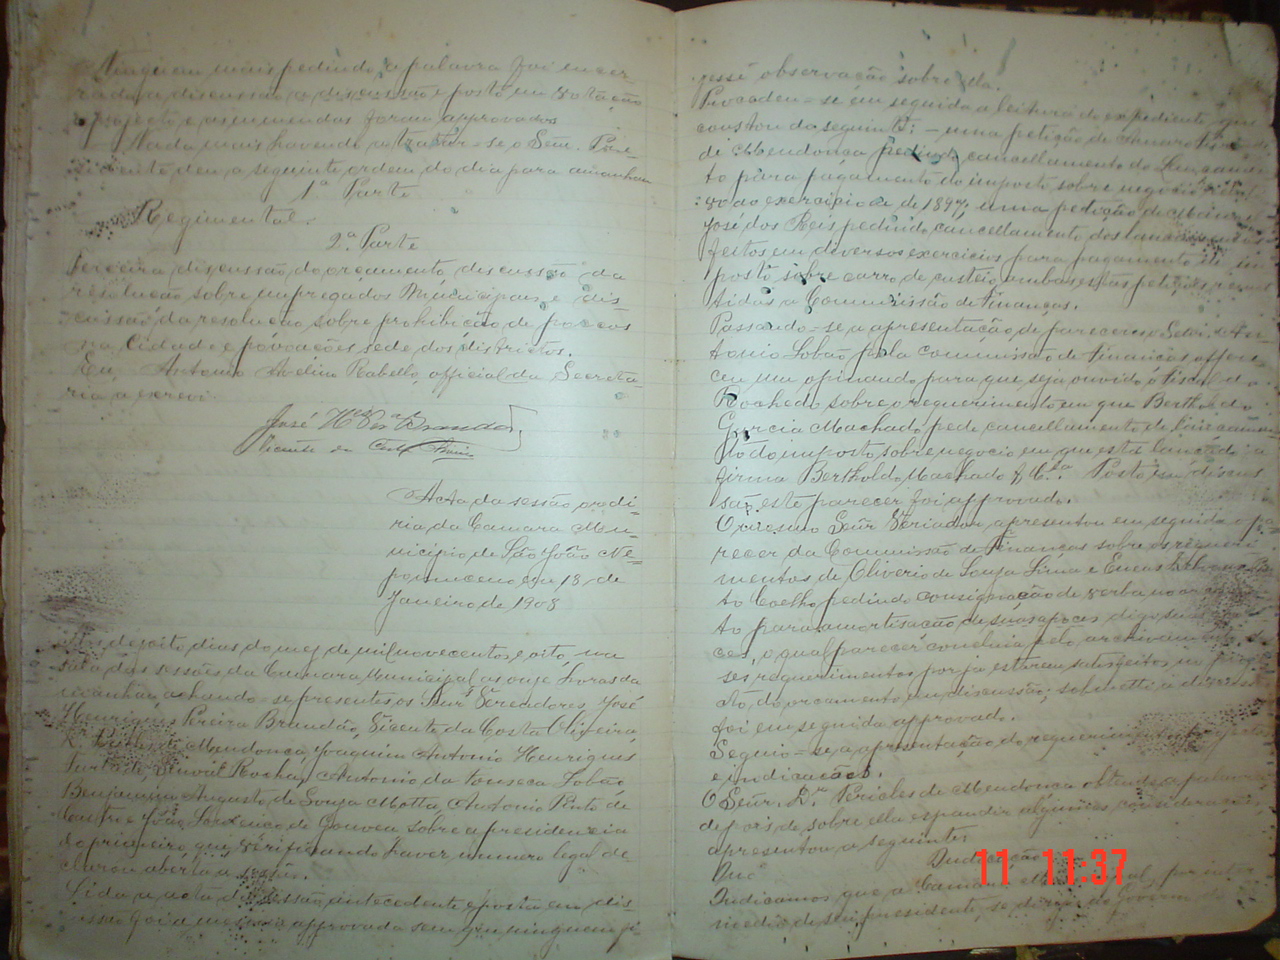 Ninguem mais pedindo a palavra foi encer-
rada a discussão a discussão e posto em votação
o projecto e as emendas foram approvados
Nada mais havendo a tratar-se o Snr. Pre-
sidente deu a seguinte ordem do dia para amanhan
1ª Parte
Regimental.
2ª Parte
Terceira discussão do orçamento, discussão da
resolução sobre empregados Municipais e dis
cussão da resolução sobre prohibição de porcos
na Cidade e povoações sede dos districtos.
Eu Antonio Avelino Rabello, official da Secreta-
ria a escrevi
José Henrs Pera Brandão
Vicente da Costa
Acta da sessão ordi-
ria da Camara Mu-
nicipio de São João Ne-
pomuceno em 18 de
Janeiro de 1908
dezoito dias do mez de mil novecentos e oito, na
sala das sessões da Camara Municipal as onze horas da
manhã, achando-se presentes os Snrs Vereadores, José
Henriques Pereira Brandão, Vicente da Costa Oliveira,
Dr. Pericles de Mendonça, Joaquim Antonio Henriques
Furtado, Rocha, Antonio da Fonseca Lobão,
Benjamim Augusto de Souza Motta, Antonio Pinto de
Castro e João Lourenço de Gouvea sobre a presidencia
do primeiro, que verificando haver numero legal de-
clarou aberta a sessão.
Lida a acta da sessão antecedente e posta em dis-
cussão foi a mesma approvada sem que ninguem fi-
zesse observação sobre ella.
Procedeu-se em seguida a leitura do expediente que
constou do seguinte: - uma petição de
de Mendonça pedindo cancellamento do lançamen-
to para pagamento do imposto sobre negocio
ao exercicio de 1897; uma petição de
José dos Reis pedindo cancellamento dos lançamentos
feitos em diversos exercicios para pagamento de im
posto sobre carro de custeio, ambas estas petições
a Commissão de Finanças.
Passando-se a apresentação de pareceres o Snr. An-
tonio Lobão pela commissão de Finanças offere-
ceu um opinando para que seja ouvido o fiscal do
Rochedo sobre o requerimento em que Bertholdo
Garcia Machado pede cancellamento de lançamen
to do imposto sobre negocio em que está lançada a
firma Bertholdo Machado & Cia. Posto em discus
são este parecer foi approvado.
O mesmo Señr Veriador apresentou em seguida o pa
recer da Commissão de Finanças sobre os requeri
mentos de Oliverio de Souza Lima e Eneas
Coelho pedindo consignação de verba no orçamen
to para amortisação de suas apolices
o qual parecer concluia pelo archivamento
ses requerimentos por já estarem satisfeitos no proje
cto do orçamento em discussão; submetti a discussão
foi em seguida approvado.
Seguio-se a apresentação de requerimentos, projectos
e indicações.
O Señr. Dr. Pericles de Mendonça obtendo a palavra
depois de sobre ella expandir algumas considerações,
apresentou a seguinte:
Indicação
Indicamos que a Camara Municipal, por inter
medio de seu presidente, se dirija ao Governo
11 11:37